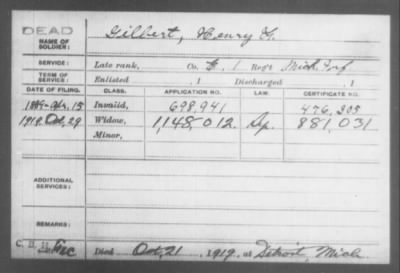 DEAD
NAME OF SOLDIER: Gilbert, Henry G.
SERVICE: Late rank, Co. G, 1 Reg't Mich. Inf
TERM OF SERVICE: Enlisted , 1 Discharged , 1
DATE OF FILING. CLASS. APPLICATION NO. LAW. CERTIFICATE NO.
1889-Apr. 15 Invalid, 698,941 476,305
1919, Oct, 29 Widow, 1,148,012 881,031
Minor,
ADDITIONAL SERVICES:
REMARKS:
Died Oct, 21, 1919, at Detroit, Mich